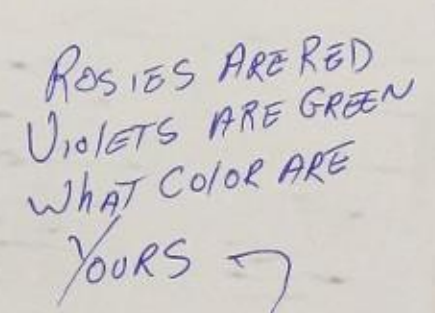 ROSIES ARE RED
VIOlETS ARE GREEN
WhAT COlOR ARE
YOURS